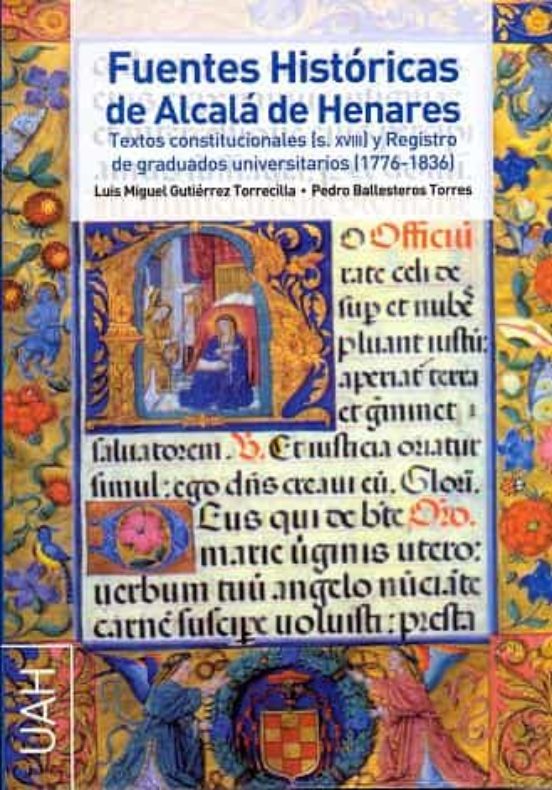 Fuentes Históricas
de Alcalá de Henares
Textos constitucionales (s. XVIII) y Registro
de graduados universitarios (1776-1836)
Luis Miguel Gutiérrez Torrecilla • Pedro Ballesteros Torres
O Officiū
rate celi de
sup et nubē
pluant iustū:
aperiat terra
et gīminet
saluatorem. V. Et iusticia oriatur
simul: ego dñs creaui eū. Glori.
Eus qui de bīte Oro.
marie ūginis utero:
uerbum tuū angelo nūciāte
carnē suscipe uoluisti: presta
UAH